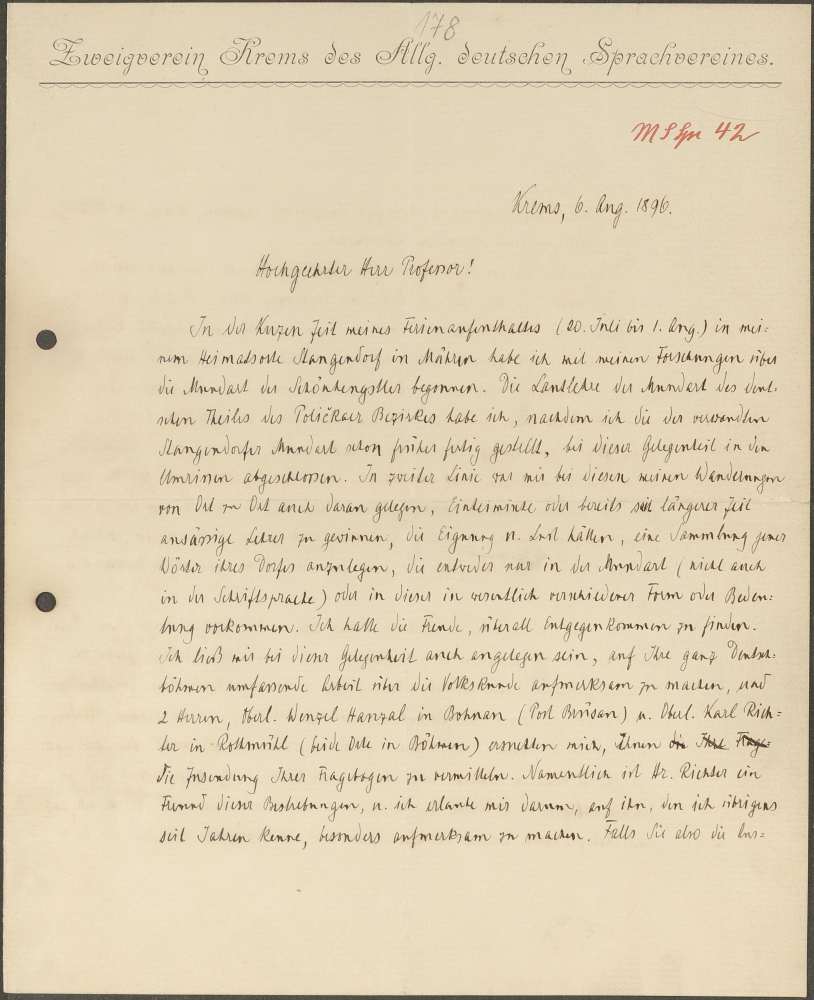 178
Zweigverein Krems des Allg. deutschen Sprachvereines.
Krems, 6. Aug. 1896.
Hochgeehrter Herr Professor!
In der kurzen Zeit meines Ferienaufenthaltes (20. Juli bis 1. Aug.) in mei-
nem Heimatsorte Stangendorf in Mähren habe ich mit meinen Forschungen über
die Mundart der Schönhengstler begonnen. Die Lautlehre der Mundart des deut-
schen Theiles des Poličkaer Bezirkes habe ich, nachdem ich die der verwandten
Stangendorfer Mundart schon früher fertig gestellt, bei dieser Gelegenheit in den
Umrissen abgeschlossen. In zweiter Linie war mir bei diesen meinen Wanderungen
von Ort zu Ort auch daran gelegen, Einheimische oder bereits seit längerer Zeit
ansässige Lehrer zu gewinnen, die Eignung u. Lust hätten, eine Sammlung jener
Wörter ihres Dorfes anzulegen, die entweder nur in der Mundart (nicht auch
in der Schriftsprache) oder in dieser in wesentlich verschiedener Form oder Bedeu-
tung vorkommen. Ich hatte die Freude, überall Entgegenkommen zu finden.
Ich ließ mir bei dieser Gelegenheit auch angelegen sein, auf Ihre ganz Deutsch-
böhmen umfassende Arbeit über die Volkskunde aufmerksam zu machen, und
2 Herren, Oberl. Wenzel Hanzal in Bohnau (Post Brüsau) u. Oberl. Karl Rich-
ter in Rothmühl (beide Orte in Böhmen) ersuchten mich, Ihnen die Ihre Frage-
die Zusendung Ihrer Fragebogen zu vermitteln. Namentlich ist Hr. Richter ein
Freund dieser Bestrebungen, u. ich erlaube mir darum, auf ihn, den ich übrigens
seit Jahren kenne, besonders aufmerksam zu machen. Falls Sie also die Aus-